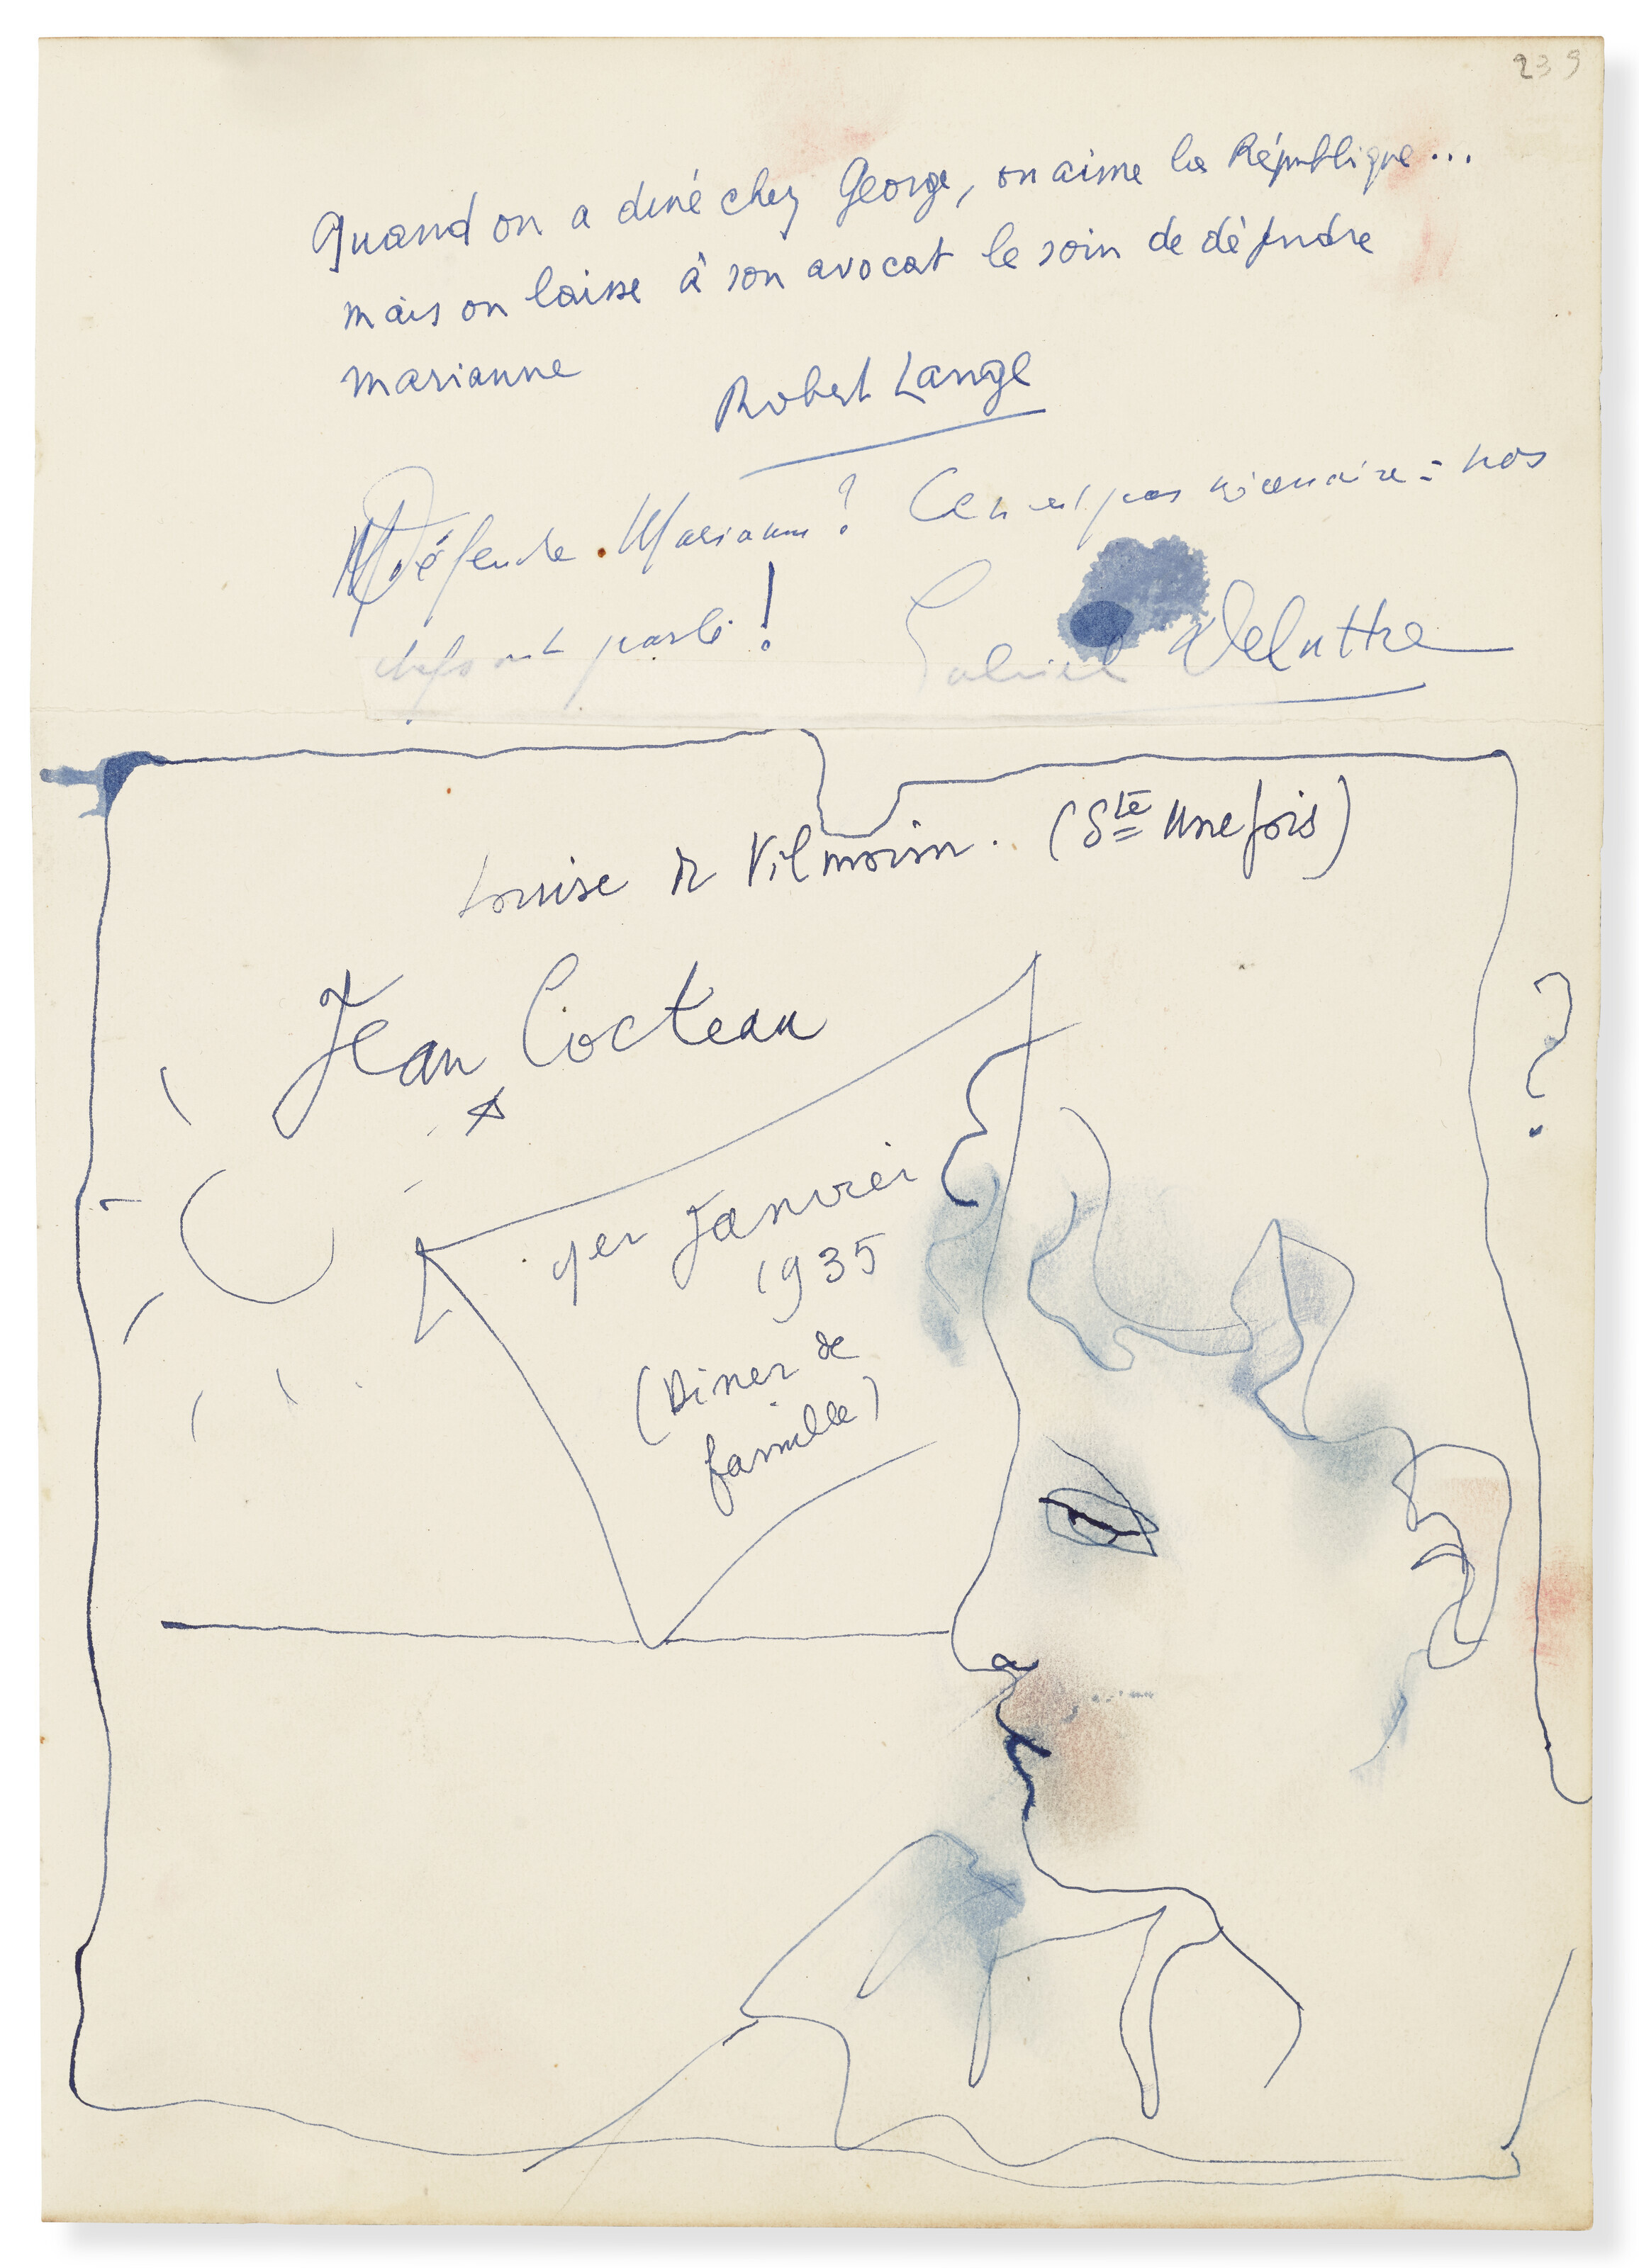 239
Quand on a diné chez George, on aime la République...
mais on laisse à son avocat le soin de défendre
marianne
Robert Lange
Défendre Marianne? Ce n'est pas nécessaire : nos
chefs ont parlé !
Gabriel Delattre
Louise de Vilmorin. (Ste Unefois)
Jean Cocteau
1er Janvier
1935
(Diner de
famille)
?